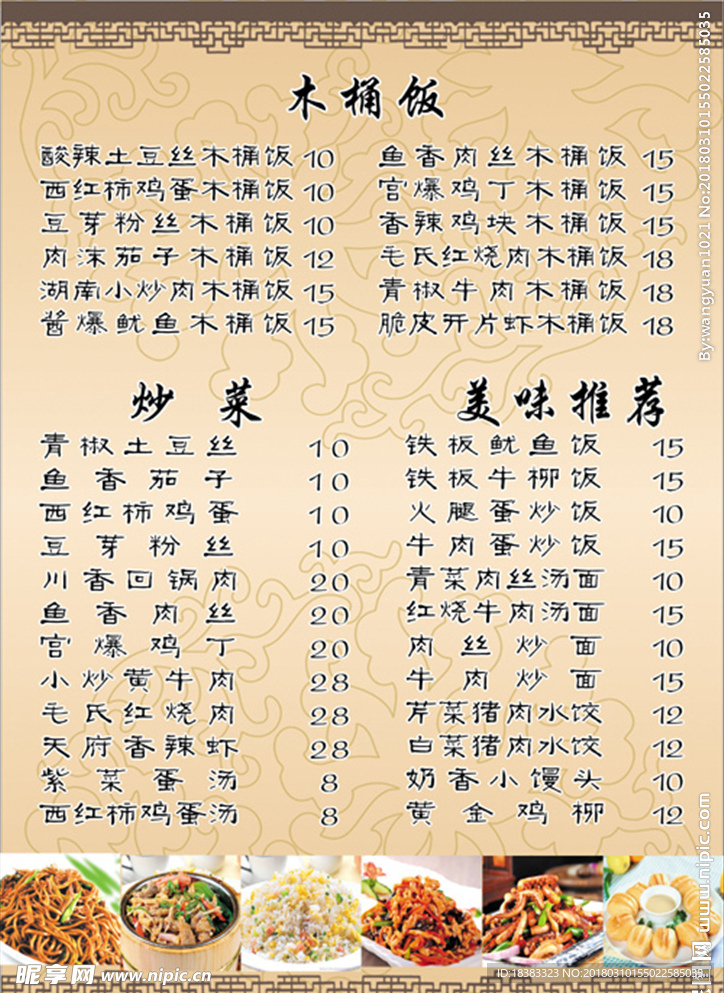 木桶饭
酸辣土豆丝木桶饭 10
西红柿鸡蛋木桶饭 10
豆芽粉丝木桶饭 10
肉沫茄子木桶饭 12
湖南小炒肉木桶饭 15
酱爆鱿鱼木桶饭 15
鱼香肉丝木桶饭 15
宫爆鸡丁木桶饭 15
香辣鸡块木桶饭 15
毛氏红烧肉木桶饭 18
青椒牛肉木桶饭 18
脆皮开片虾木桶饭 18
炒菜
青椒土豆丝 10
鱼香茄子 10
西红柿鸡蛋 10
豆芽粉丝 10
川香回锅肉 20
鱼香肉丝 20
宫爆鸡丁 20
小炒黄牛肉 28
毛氏红烧肉 28
天府香辣虾 28
紫菜蛋汤 8
西红柿鸡蛋汤 8
美味推荐
铁板鱿鱼饭 15
铁板牛柳饭 15
火腿蛋炒饭 10
牛肉蛋炒饭 15
青菜肉丝汤面 10
红烧牛肉汤面 15
肉丝炒面 10
牛肉炒面 15
芹菜猪肉水饺 12
白菜猪肉水饺 12
奶香小馒头 10
黄金鸡柳 12
By:wangyuan1021 No:20180310155022585035
www.nipic.com
昵享网 www.nipic.cn
ID:18383323 NO:20180310155022585035